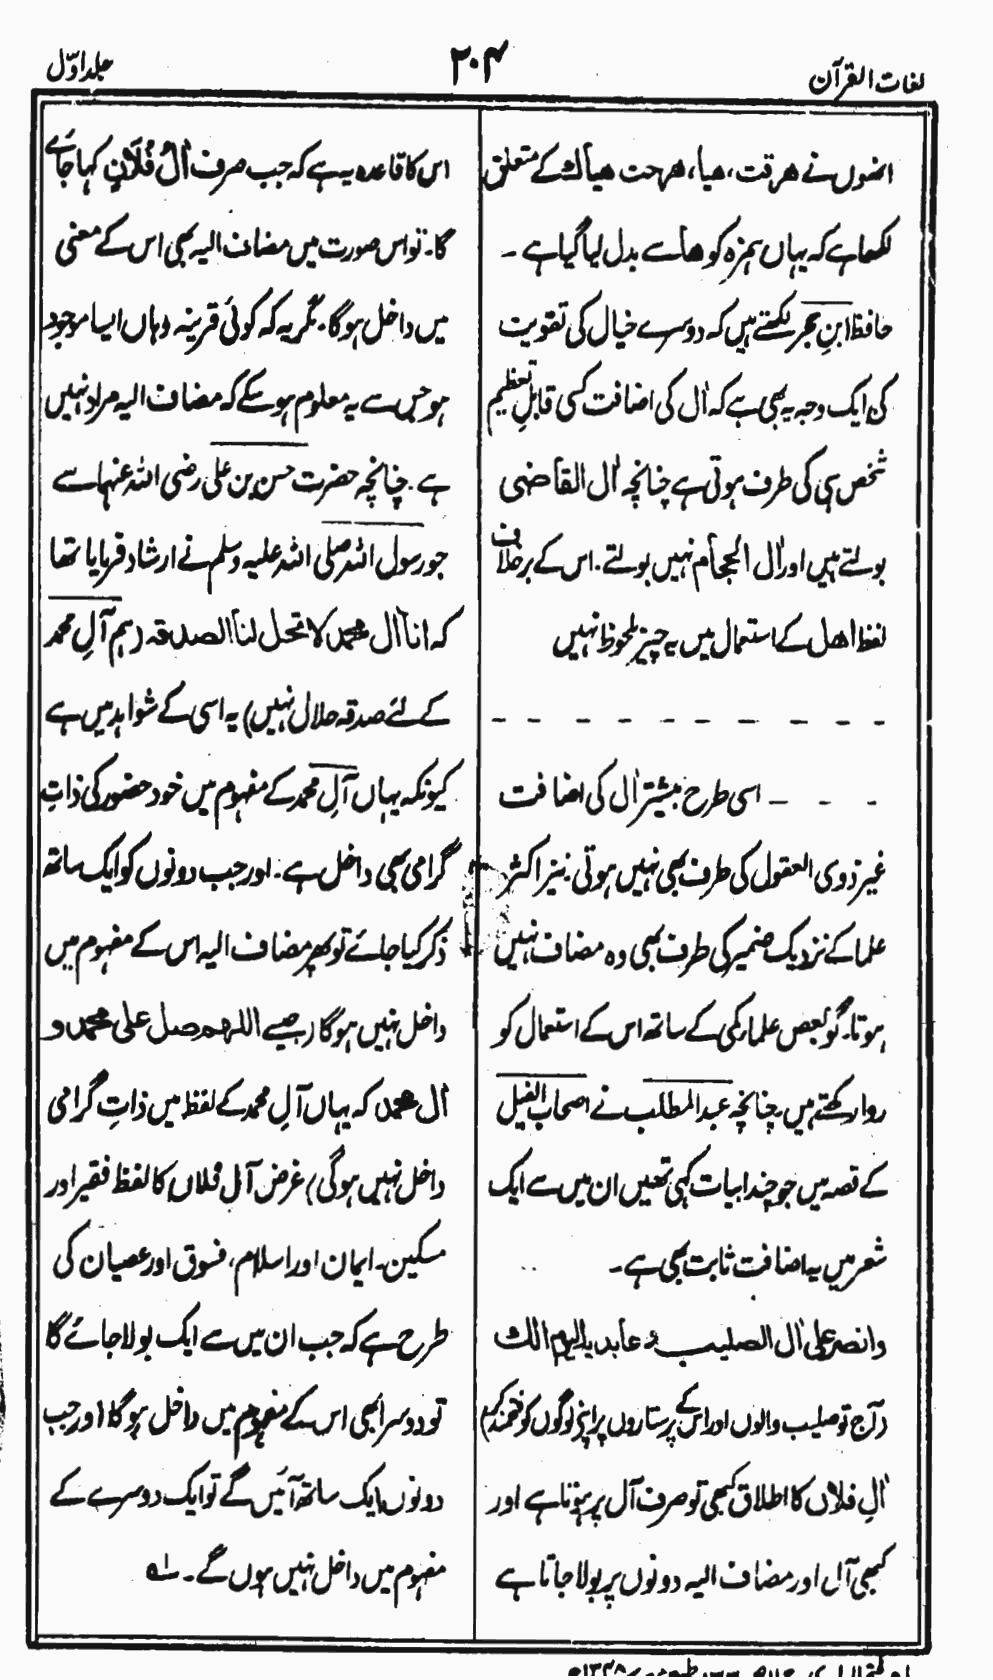 لغات القرآن
۲۰۴
جلد اوّل
انھوں نے ھرقت، ھیا، ھرحت ھیاك کے متعلق
لکھا ہے کہ یہاں ہمزہ کو ھا سے بدل لیا گیا ہے ۔
حافظ ابنِ حجر لکھتے ہیں کہ دوسرے خیال کی تقویت
کی ایک وجہ یہ بھی ہے کہ اٰل کی اضافت کسی قابلِ تعظیم
شخص ہی کی طرف ہوتی ہے چنانچہ اٰل القاضی
بولتے ہیں اور اٰل الحجام نہیں بولتے ۔ اس کے برخلاف
لفظ اھل کے استعمال میں یہ چیز ملحوظ نہیں
- - - - - - - - - -
- - - اسی طرح بیشتر اٰل کی اضافت
غیر ذوی العقول کی طرف بھی نہیں ہوتی ۔ نیز اکثر
علما کے نزدیک ضمیر کی طرف بھی وہ مضاف نہیں
ہوتا۔ گو بعض علمار کمی کے ساتھ اس کے استعمال کو
روا رکھتے ہیں ۔ چنانچہ عبد المطلب نے اصحاب الفیل
کے قصہ میں جو چند ابیات کہی تھیں ان میں سے ایک
شعر میں یہ اضافت ثابت بھی ہے ۔
وانصر علی اٰل الصلیب وعابدیہ الیوم اٰلك
(آج تو صلیب والوں اور اس کے پرستاروں پر اپنے لوگوں کو فتحمند کر)
اٰلِ فلاں کا اطلاق کبھی تو صرف آل پر ہوتا ہے اور
کبھی آل اور مضاف الیہ دونوں پر بولا جاتا ہے
اس کا قاعدہ یہ ہے کہ جب صرف اٰلُ فُلَانٍ کہا جائے
گا۔ تو اس صورت میں مضاف الیہ بھی اس کے معنی
میں داخل ہوگا ۔ مگر یہ کہ کوئی قرینہ وہاں ایسا موجود
ہو جس سے یہ معلوم ہو سکے کہ مضاف الیہ مراد نہیں
ہے ۔ چنانچہ حضرت حسن بن علی رضی اللہ عنہما سے
جو رسول اللہ صلی اللہ علیہ وسلم نے ارشاد فرمایا تھا
کہ انا اٰل محمد لا تحل لنا الصدقہ (ہم آلِ محمد
کے لئے صدقہ حلال نہیں) یہ اسی کے شواہد میں ہے
کیونکہ یہاں آلِ محمد کے مفہوم میں خود حضور کی ذاتِ
گرامی بھی داخل ہے ۔ اور جب دونوں کو ایک ساتھ
ذکر کیا جائے تو پھر مضاف الیہ اس کے مفہوم میں
داخل نہیں ہوگا (جیسے اللہم صل علی محمد و
اٰل محمد کہ یہاں آلِ محمد کے لفظ میں ذاتِ گرامی
داخل نہیں ہوگی) غرض آلِ فلاں کا لفظ فقیر اور
مسکین۔ ایمان اور اسلام، فسوق اور عصیان کی
طرح ہے کہ جب ان میں سے ایک بولا جائے گا
تو دوسرا بھی اس کے مفہوم میں داخل ہوگا اور جب
دونوں ایک ساتھ آئیں گے تو ایک دوسرے کے
مفہوم میں داخل نہیں ہوں گے ۔ لہ